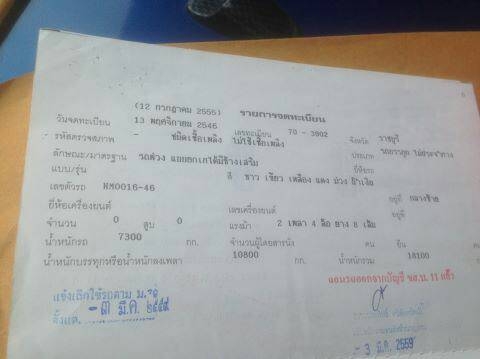 (12 กรกฎาคม 2555) รายการจดทะเบียน
วันจดทะเบียน 13 พฤศจิกายน 2546 เลขทะเบียน 70 - 3902 จังหวัด ราชบุรี
รหัสตรวจสภาพ - ชนิดเชื้อเพลิง ไม่ใช้เชื้อเพลิง ประเภท รถบรรทุก ไม่ประจำทาง
ลักษณะ/มาตรฐาน รถพ่วง แยกยกเทได้มีข้างเสริม ยี่ห้อรถ
แบบ/รุ่น สี ขาว เขียว เหลือง แดง ม่วง น้ำเงิน
เลขตัวรถ KM0016-46 อยู่ที่ กลางซ้าย
ยี่ห้อเครื่องยนต์ เลขเครื่องยนต์ อยู่ที่
จำนวน 0 สูบ 0 แรงม้า 2 เพลา 4 ล้อ ยาง 8 เส้น
น้ำหนักรถ 7300 กก. จำนวนผู้โดยสารนั่ง คน ยืน คน
น้ำหนักบรรทุกหรือน้ำหนักลงเพลา 10800 กก. น้ำหนักรวม 18100 กก.
ขส.บ. 11 แล้ว
แจ้งเลิกใช้รถตาม ม.
ตั้งแต่ -๓ มี.ค. ๒๕๕๙
- 3 มี.ค. 2559